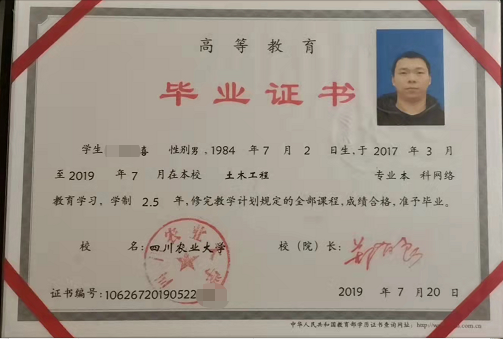 高等教育
毕业证书
学生 喜 性别男，1984 年 7 月 2 日生、于 2017 年 3 月
至 2019 年 7 月在本校 土木工程 专业本 科网络
教育学习，学制 2.5 年，修完教学计划规定的全部课程，成绩合格，准予毕业。
校 名：四川农业大学 校（院）长：
证书编号：10626720190522 2019 年 7 月 20 日
中华人民共和国教育部学历证书查询网址：http://www.chsi.com.cn